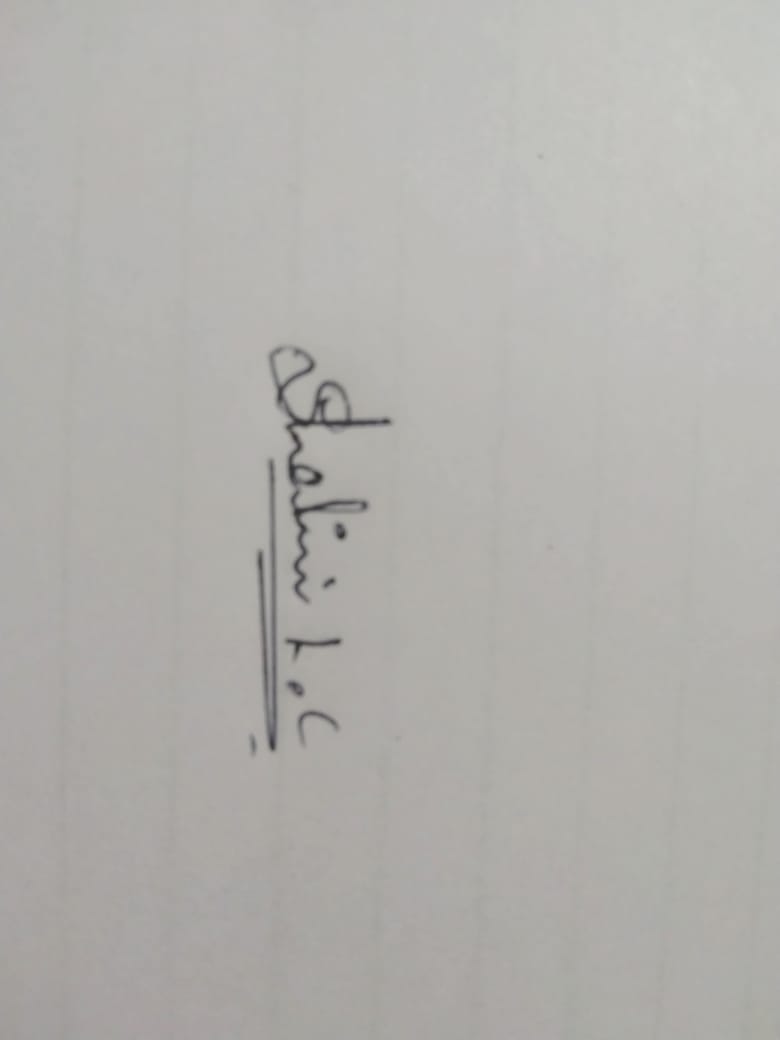 Shalini L.C